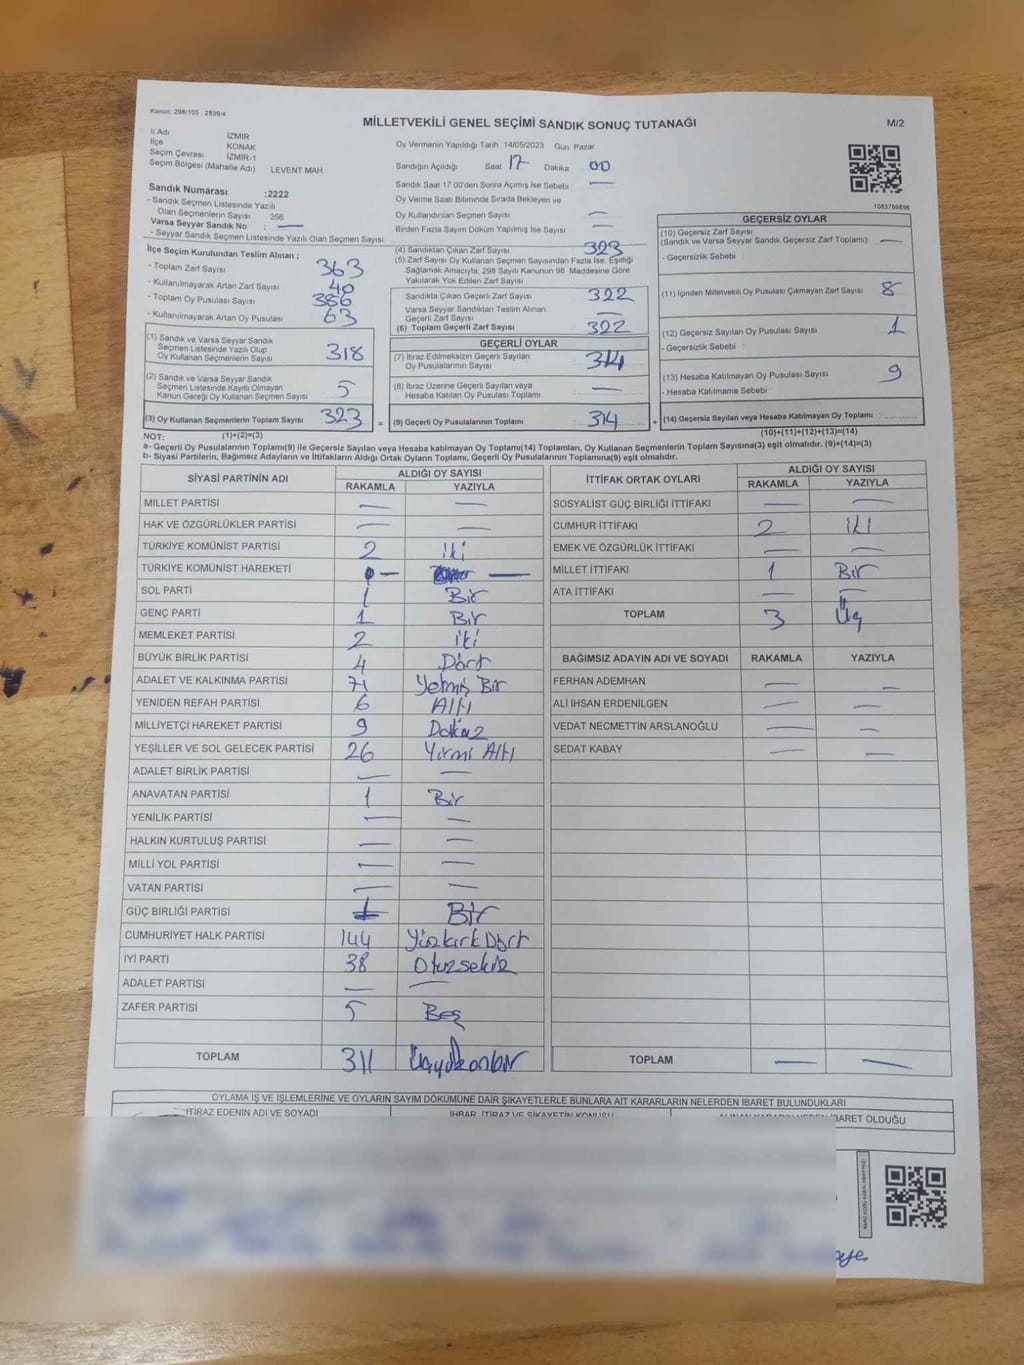 Kanun: 298/105 - 2839/4
MİLLETVEKİLİ GENEL SEÇİMİ SANDIK SONUÇ TUTANAĞI
M/2
İl Adı İZMİR
İlçe KONAK
Seçim Çevresi İZMİR-1
Seçim Bölgesi (Mahalle Adı) LEVENT MAH
Sandık Numarası :2222
- Sandık Seçmen Listesinde Yazılı
Olan Seçmenlerin Sayısı 356
Varsa Seyyar Sandık No : —
- Seyyar Sandık Seçmen Listesinde Yazılı Olan Seçmen Sayısı
Oy Vermenin Yapıldığı Tarih 14/05/2023 Gün Pazar
Sandığın Açıldığı Saat 17 Dakika 00
Sandık Saat 17.00'den Sonra Açılmış İse Sebebi —
Oy Verme Saati Bitiminde Sırada Bekleyen ve
Oy Kullandırılan Seçmen Sayısı —
Birden Fazla Sayım Dökümü Yapılmış İse Sayısı —
1083799896
İlçe Seçim Kurulundan Teslim Alınan ;
- Toplam Zarf Sayısı 363
- Kullanılmayarak Artan Zarf Sayısı 40
- Toplam Oy Pusulası Sayısı 386
- Kullanılmayarak Artan Oy Pusulası 63
(1) Sandık ve Varsa Seyyar Sandık
Seçmen Listesinde Yazılı Olup
Oy Kullanan Seçmenlerin Sayısı 318
(2) Sandık ve Varsa Seyyar Sandık
Seçmen Listesinde Kayıtlı Olmayan
Kanun Gereği Oy Kullanan Seçmen Sayısı 5
(3) Oy Kullanan Seçmenlerin Toplam Sayısı 323 =
(1)+(2)=(3)
(4) Sandıktan Çıkan Zarf Sayısı 323
(5) Zarf Sayısı Oy Kullanan Seçmen Sayısından Fazla İse, Eşitliği
Sağlamak Amacıyla, 298 Sayılı Kanunun 98 Maddesine Göre
Yakılarak Yok Edilen Zarf Sayısı
Sandıkta Çıkan Geçerli Zarf Sayısı 322
Varsa Seyyar Sandıktan Teslim Alınan
Geçerli Zarf Sayısı —
(6) Toplam Geçerli Zarf Sayısı 322
GEÇERLİ OYLAR
(7) İtiraz Edilmeksizin Geçerli Sayılan
Oy Pusulalarının Sayısı 314
(8) İtiraz Üzerine Geçerli Sayılan veya
Hesaba Katılan Oy Pusulası Toplamı —
(9) Geçerli Oy Pusulalarının Toplamı 314 +
GEÇERSİZ OYLAR
(10) Geçersiz Zarf Sayısı
(Sandık ve Varsa Seyyar Sandık Geçersiz Zarf Toplamı) —
- Geçersizlik Sebebi
(11) İçinden Milletvekili Oy Pusulası Çıkmayan Zarf Sayısı 8
(12) Geçersiz Sayılan Oy Pusulası Sayısı 1
- Geçersizlik Sebebi
(13) Hesaba Katılmayan Oy Pusulası Sayısı 9
- Hesaba Katılmama Sebebi
(14) Geçersiz Sayılan veya Hesaba Katılmayan Oy Toplamı :
(10)+(11)+(12)+(13)=(14)
NOT:
a- Geçerli Oy Pusulalarının Toplamı(9) ile Geçersiz Sayılan veya Hesaba katılmayan Oy Toplamı(14) Toplamları, Oy Kullanan Seçmenlerin Toplam Sayısına(3) eşit olmalıdır. (9)+(14)=(3)
b- Siyasi Partilerin, Bağımsız Adayların ve İttifakların Aldığı Ortak Oyların Toplamı, Geçerli Oy Pusulalarının Toplamına(9) eşit olmalıdır.
SİYASİ PARTİNİN ADI ALDIĞI OY SAYISI
RAKAMLA YAZIYLA
MİLLET PARTİSİ — —
HAK VE ÖZGÜRLÜKLER PARTİSİ — —
TÜRKİYE KOMÜNİST PARTİSİ 2 İki
TÜRKİYE KOMÜNİST HAREKETİ — —
SOL PARTİ 1 Bir
GENÇ PARTİ 1 Bir
MEMLEKET PARTİSİ 2 iki
BÜYÜK BİRLİK PARTİSİ 4 Dört
ADALET VE KALKINMA PARTİSİ 71 Yetmiş Bir
YENİDEN REFAH PARTİSİ 6 Altı
MİLLİYETÇİ HAREKET PARTİSİ 9 Dokuz
YEŞİLLER VE SOL GELECEK PARTİSİ 26 Yirmi Altı
ADALET BİRLİK PARTİSİ — —
ANAVATAN PARTİSİ 1 Bir
YENİLİK PARTİSİ — —
HALKIN KURTULUŞ PARTİSİ — —
MİLLİ YOL PARTİSİ — —
VATAN PARTİSİ — —
GÜÇ BİRLİĞİ PARTİSİ 1 Bir
CUMHURİYET HALK PARTİSİ 144 YüzkırkDört
İYİ PARTİ 38 Otuzsekiz
ADALET PARTİSİ — —
ZAFER PARTİSİ 5 Beş
TOPLAM 311 Üçyüzonbir
İTTİFAK ORTAK OYLARI ALDIĞI OY SAYISI
RAKAMLA YAZIYLA
SOSYALİST GÜÇ BİRLİĞİ İTTİFAKI — —
CUMHUR İTTİFAKI 2 iki
EMEK VE ÖZGÜRLÜK İTTİFAKI — —
MİLLET İTTİFAKI 1 Bir
ATA İTTİFAKI — —
TOPLAM 3 Üç
BAĞIMSIZ ADAYIN ADI VE SOYADI RAKAMLA YAZIYLA
FERHAN ADEMHAN — —
ALİ İHSAN ERDENİLGEN — —
VEDAT NECMETTİN ARSLANOĞLU — —
SEDAT KABAY — —
TOPLAM — —
OYLAMA İŞ VE İŞLEMLERİNE VE OYLARIN SAYIM DÖKÜMÜNE DAİR ŞİKAYETLERLE BUNLARA AİT KARARLARIN NELERDEN İBARET BULUNDUKLARI
İTİRAZ EDENİN ADI VE SOYADI İHBAR, İTİRAZ VE ŞİKAYETİN KONUSU ALINAN KARARIN NEDEN İBARET OLDUĞU